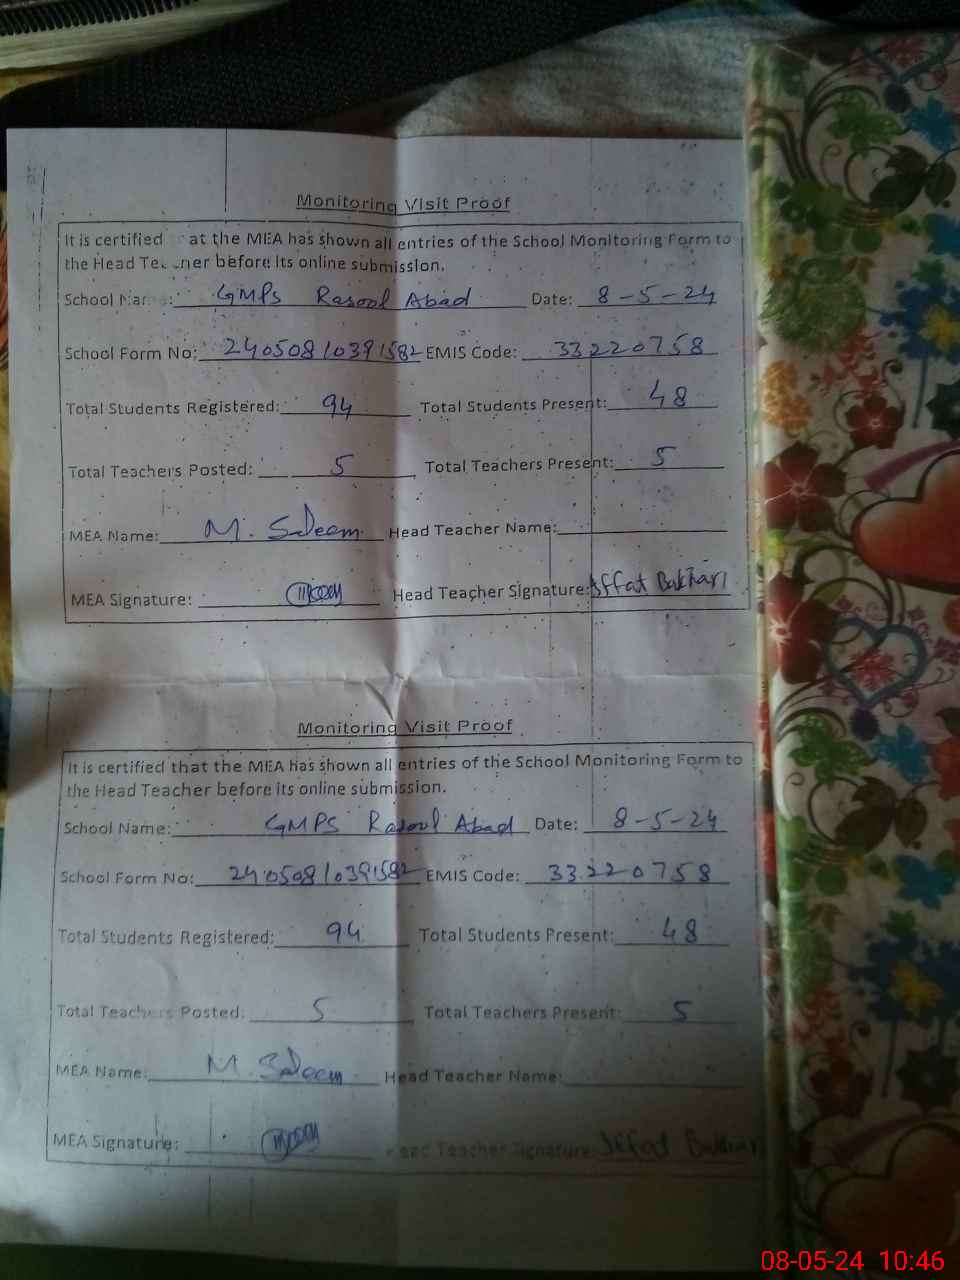 Monitoring Visit Proof
It is certified at the MEA has shown all entries of the School Monitoring Form to
the Head Teacher before its online submission.
School Name: GMPS Rasool Abad Date: 8-5-24
School Form No: 24050810391582 EMIS Code: 33220758
Total Students Registered: 94 Total Students Present: 48
Total Teachers Posted: 5 Total Teachers Present: 5
MEA Name: M. Saleem Head Teacher Name:
MEA Signature: Head Teacher Signature: Iffat Bukhari
Monitoring Visit Proof
It is certified that the MEA has shown all entries of the School Monitoring Form to
the Head Teacher before its online submission.
School Name: GMPS Rasool Abad Date: 8-5-24
School Form No: 24050810391582 EMIS Code: 33220758
Total Students Registered: 94 Total Students Present: 48
Total Teachers Posted: 5 Total Teachers Present: 5
MEA Name: M. Saleem Head Teacher Name:
MEA Signature: Head Teacher Signature: Iffat Bukhari
08-05-24 10:46